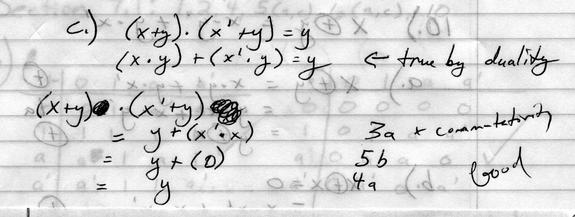 c.) (x+y)·(x'+y)=y
(x·y)+(x'·y)=y ← true by duality
(x+y)·(x'+y)
= y+(x'·x) 3a + commutativity
= y+(0) 5b
= y 4a Good